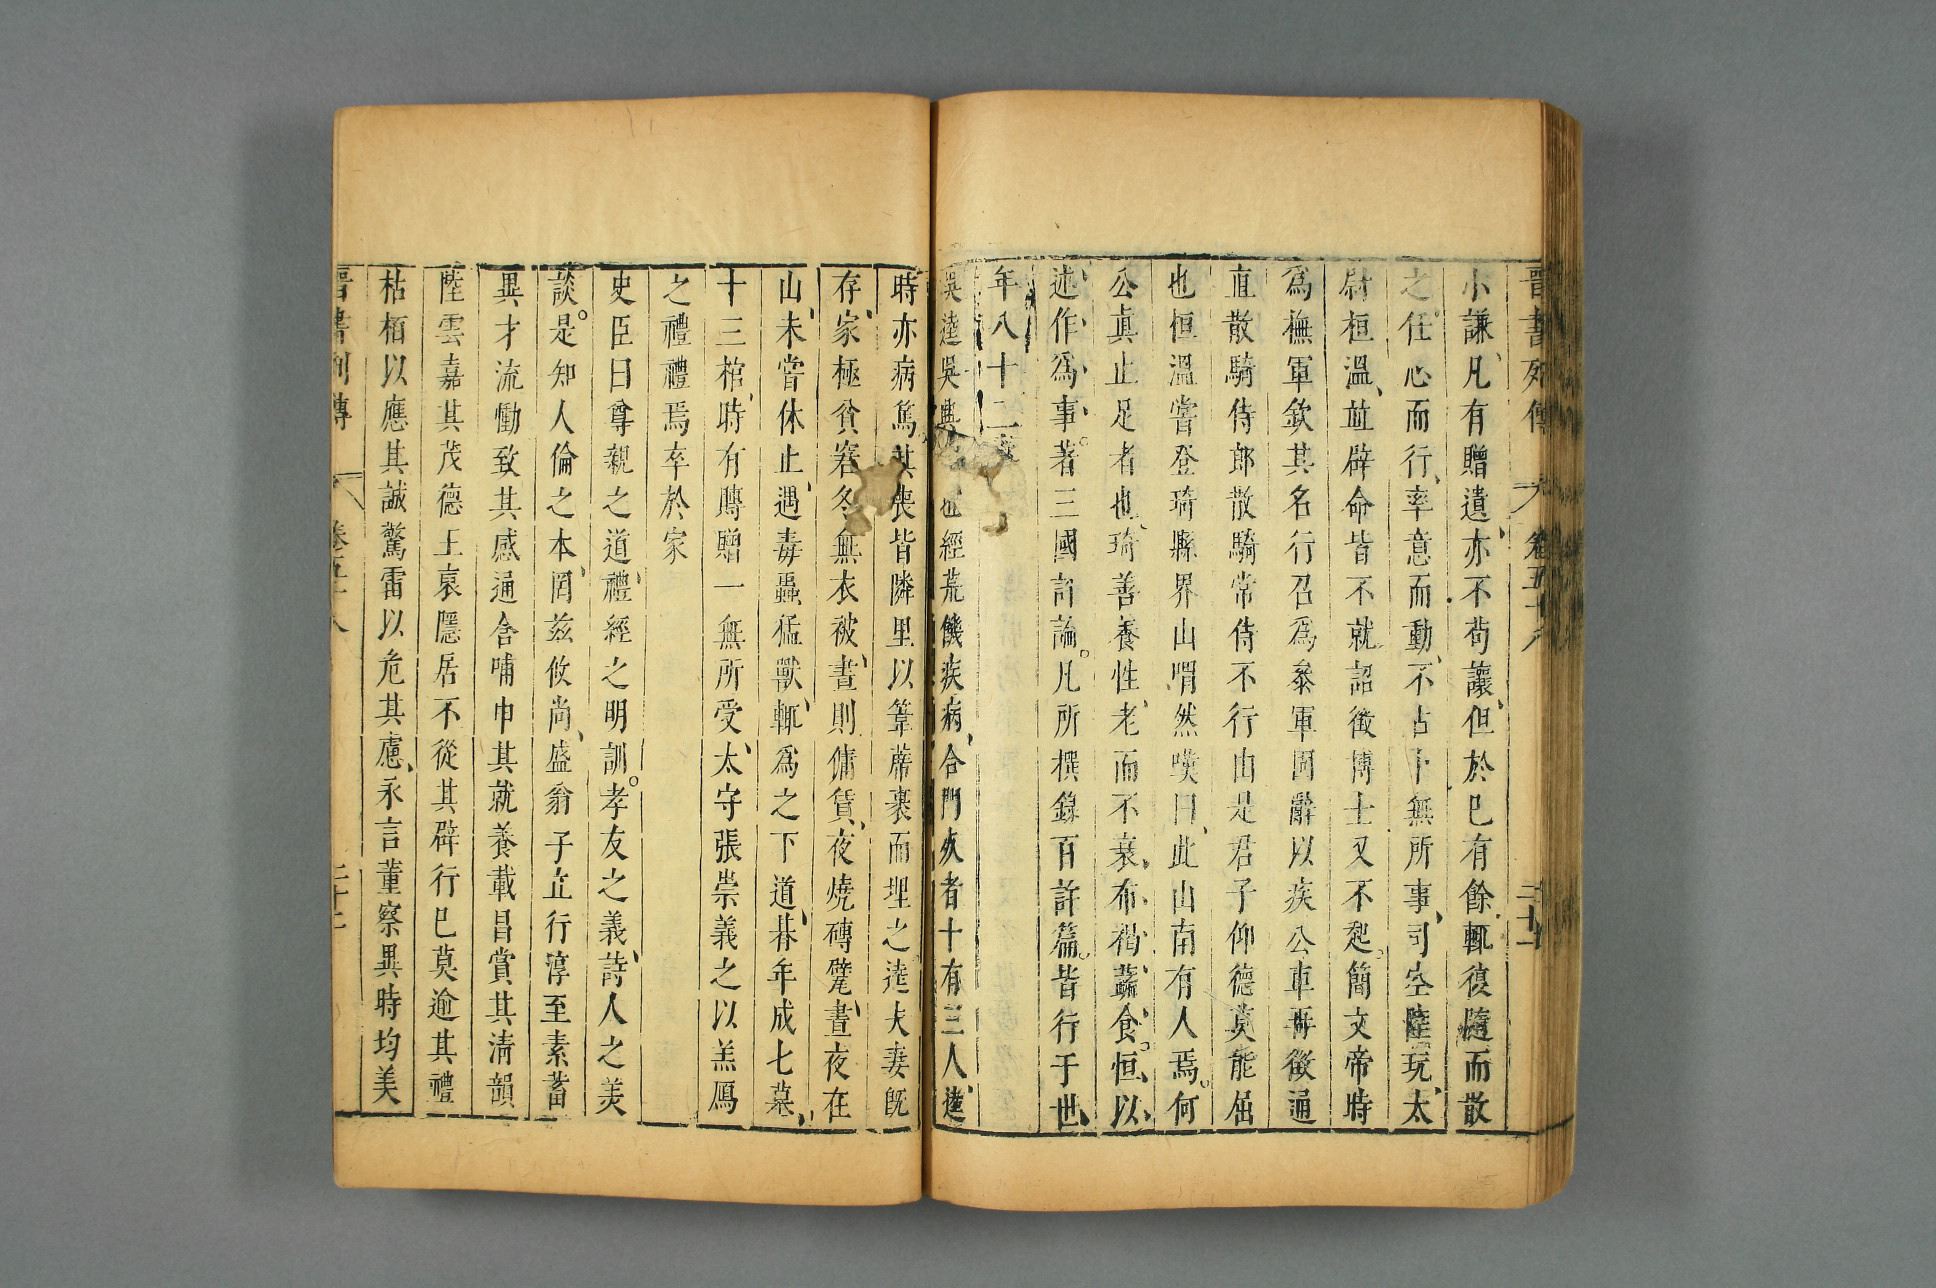 晉書列傳 卷五十八 二十一
小謙凡有贈遺亦不苟讓但於已有餘輒復隨而散
之任心而行率意而動不占卜無所事司空陸玩太
尉桓溫並辟命皆不就詔徵博士又不起簡文帝時
爲撫軍欽其名行召爲參軍固辭以疾公車再徵通
直散騎侍郎散騎常侍不行由是君子仰德莫能屈
也恒溫嘗登琦縣界山喟然嘆曰此山南有人焉何
公眞止足者也琦善養性老而不衰布褐蔬食恒以
述作爲事著三國評論凡所撰錄百許篇皆行于世
年八十二
吳逵吳興也經荒饑疾病合門死者十有三人逵
時亦病篤其喪皆隣里以葦蓆裹而埋之逵夫妻旣
存家極貧窘冬無衣被晝則傭賃夜燒磚甓晝夜在
山未嘗休止遇毒蟲猛獸輒爲之下道朞年成七墓
十三棺時有賻贈一無所受太守張崇義之以羔鴈
之禮禮焉卒於家
史臣曰尊親之道禮經之明訓孝友之義詩人之美
談是知人倫之本罔茲攸尚盛翁子立行淳至素蓄
異才流慟致其感通含哺申其就養載昌賞其淸韻
陸雲嘉其茂德王裒隱居不從其辟行已莫逾其禮
枯栢以應其誠驚雷以危其慮永言董察異時均美
晉書列傳 卷五十八 二十二